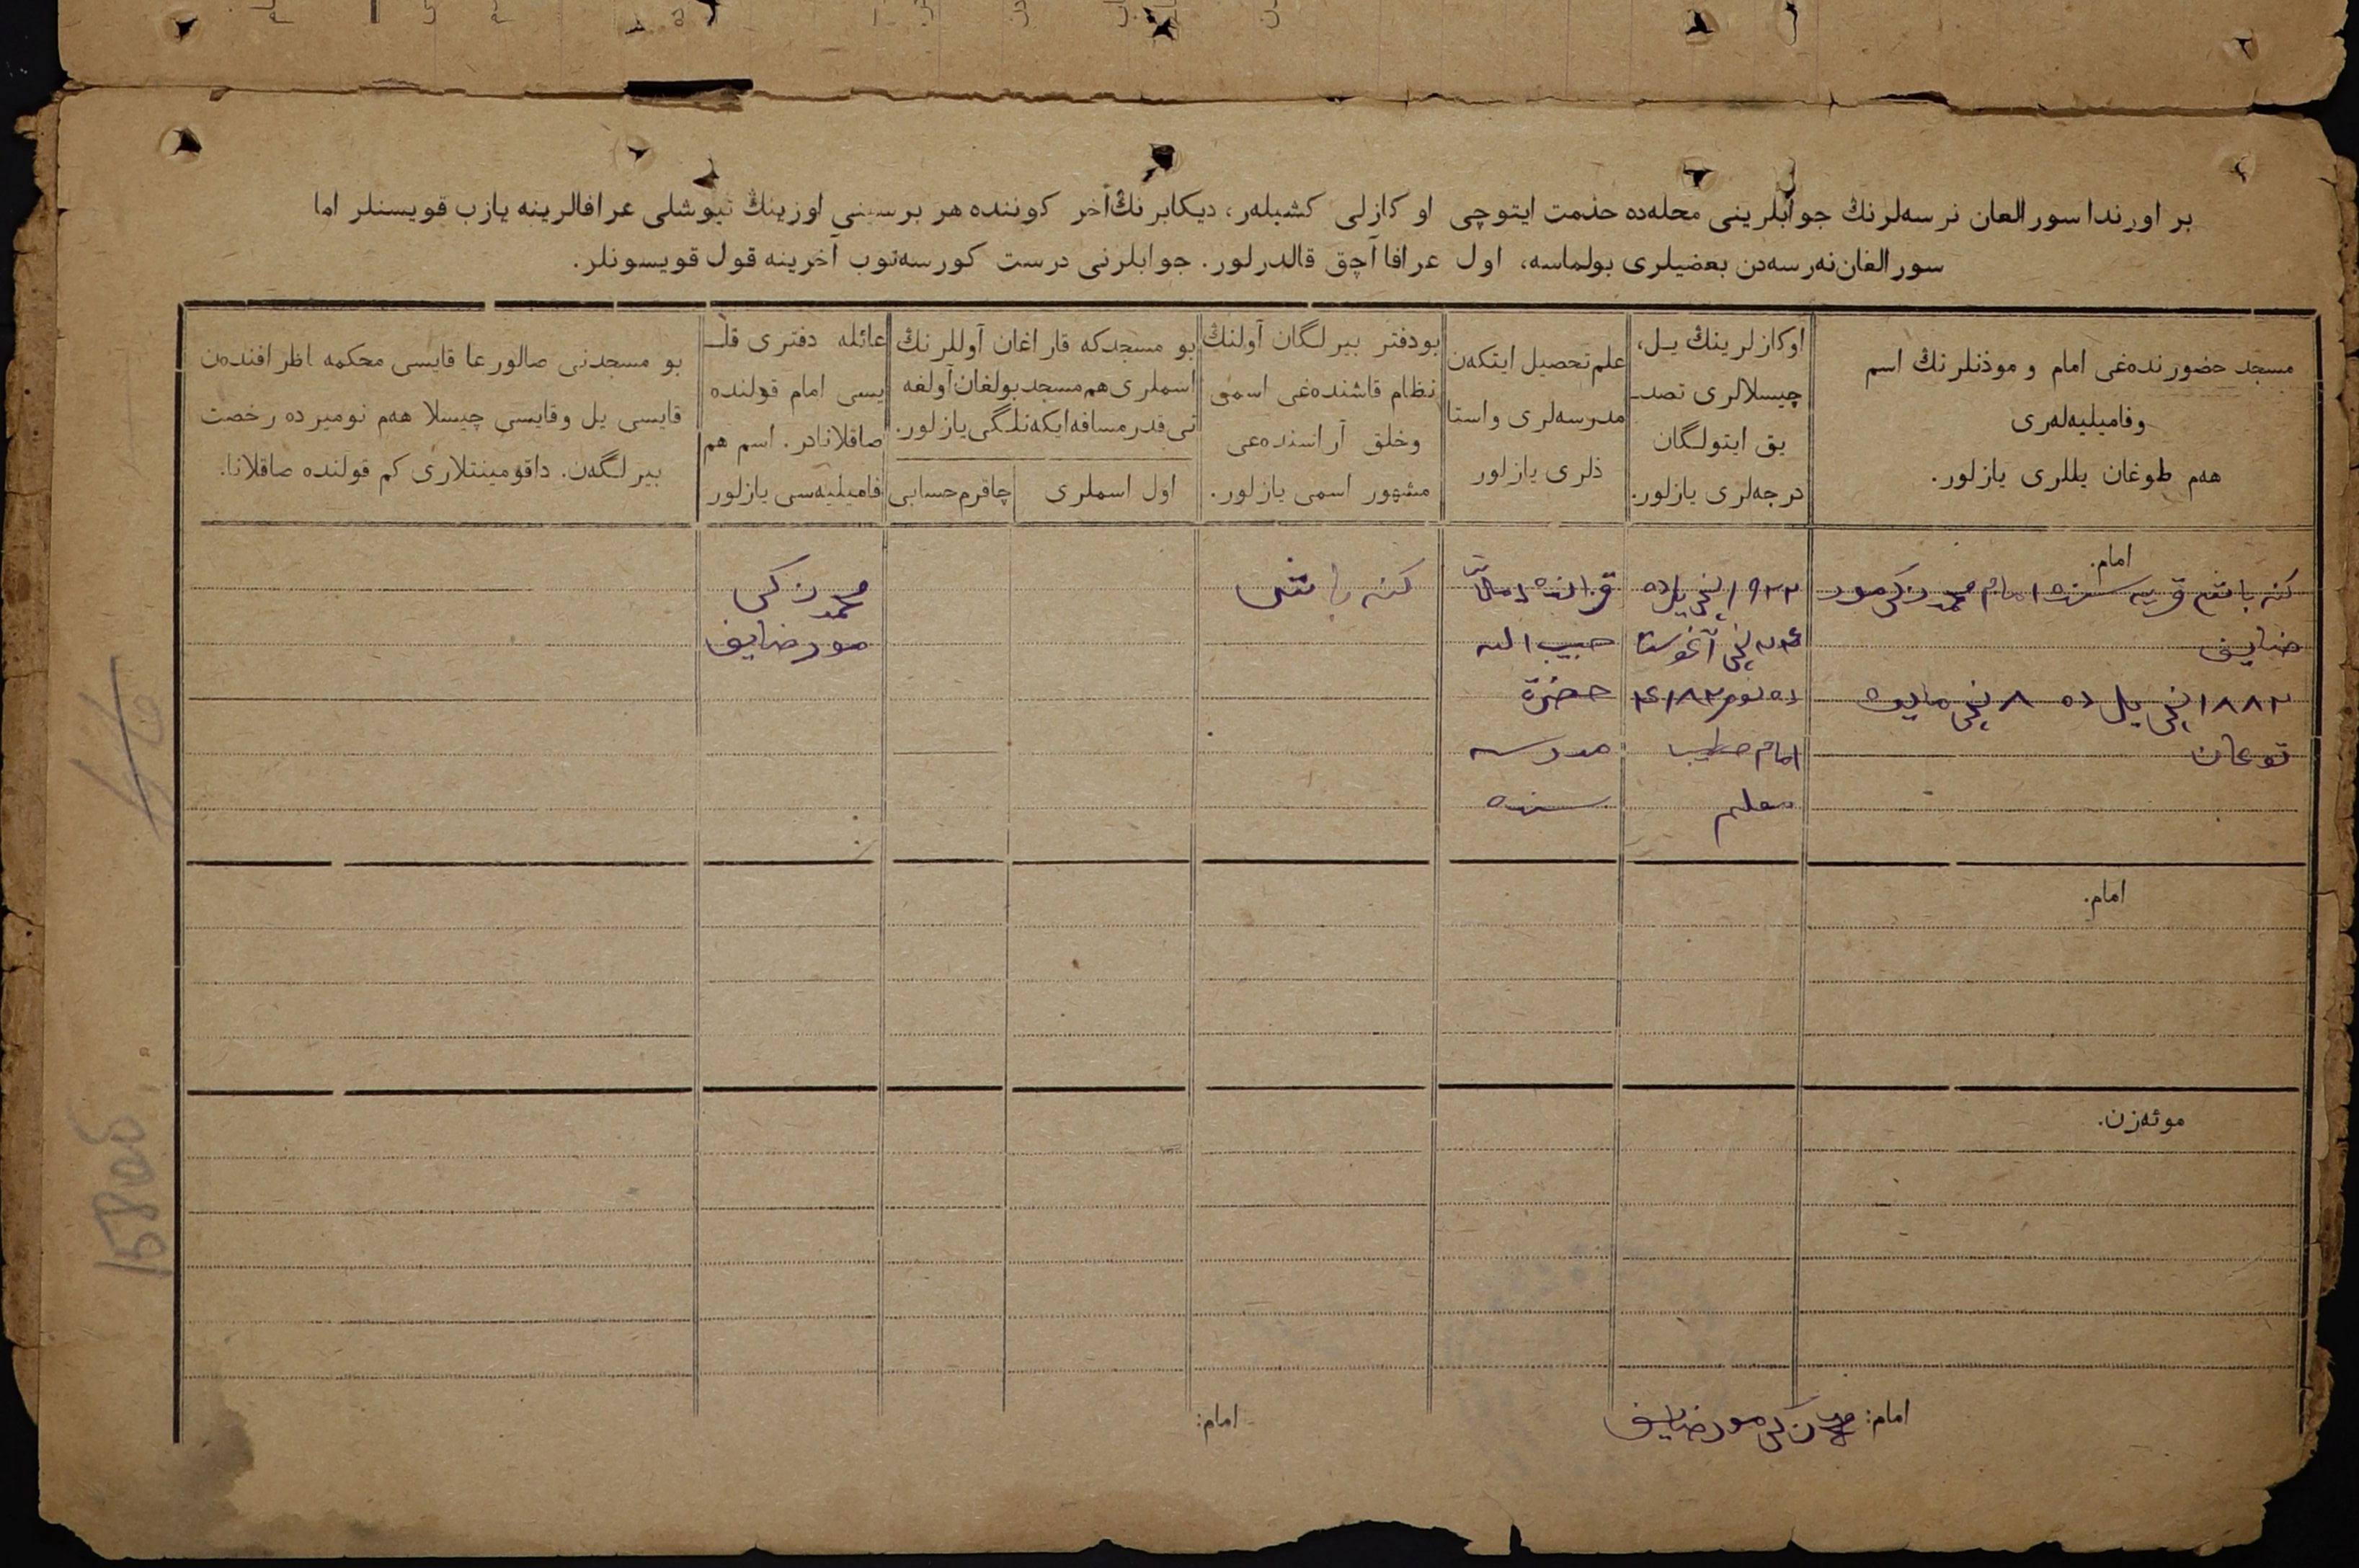 بر اورندا سورالعان نرسه‌لرنڭ جوابلرینی محله‌ده حذمت ایتوچی او کازلی کشیله‌ر، دیکابرنڭ آخر کوننده هر برسینی اوزینڭ تیوشلی عرافالرینه یازب قویسنلر اما
سورالغان نه‌رسه‌دن بعضیلری بولماسه، اول عرافا آچق قالدرلور. جوابلرنی درست کورسه‌توب آخرینه قول قویسونلر.
مسجد حضورنده‌غی امام و موذنلرنڭ اسم
وفامیلیه‌له‌ری
هه‌م طوغان یللری یازلور.
اوکازلرینڭ یـل،
چیسلالری تصدـ
یق ایتولگان
درجه‌لری یازلور.
علم تحصیل ایتکه‌ن
مدرسه‌لری واستا
ذلری یازلور
بودفتر بیرلگان آولنڭ
نظام قاشنده‌غی اسمی
وخلق آراسنده‌عی
مشهور اسمی یازلور.
بو مسجدکه قاراغان آوللرنڭ
اسملری هم مسجد بولغان آولغه
نی قدر مسافه ایکه‌نلگی یازلور.
اول اسملری
چاقرم حسابی
عائله دفتری قلـ
یسی امام قولنده
صاقلانادر. اسم هم
فامیلیه‌سی یازلور
بو مسجدنی صالورعا قایسی محکمه اطرافنده‌ن
قایسی یل وقایسی چیسلا هه‌م نومیرده رخصت
بیرلگه‌ن. داقومینتلاری کم قولنده صاقلانا.
امام.
کنه باش قریه سنده امام محمدزکی مور
ضایف
۱۸۸۲ نچی یل ده ۸ نچی مایده
توغان
۱۹۲۲ نچی یلده
نچی آغوستا
ده نومر
امام خطیب
معلم
حبیب الله
حضرة
مدرسه
سنده
کنه باش
محمدزکی
مورضایف
امام.
موئه‌زن.
امام: محمدزکی مورضایف
امام:
158об